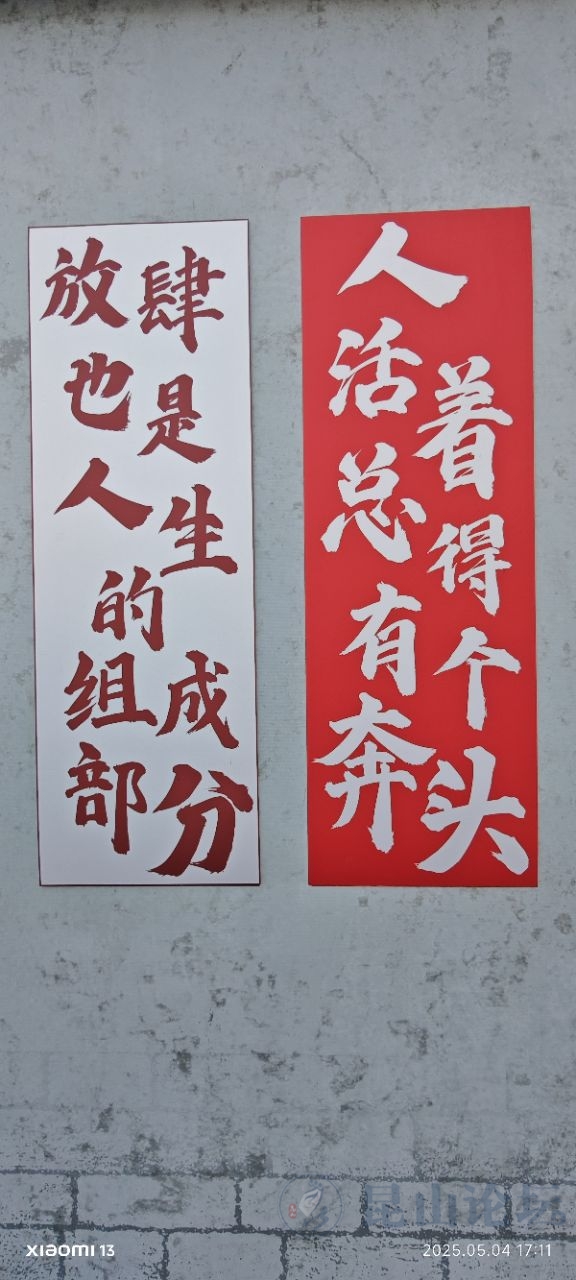 放肆也是人生的组成部分
人活着总得有个奔头
昆山论坛
XIAOMI 13
2025.05.04 17:11